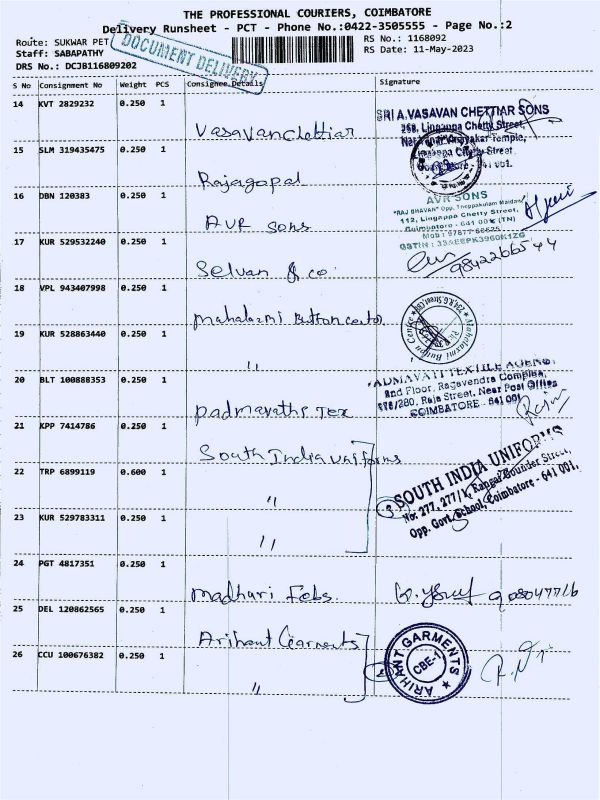 THE PROFESSIONAL COURIERS, COIMBATORE
Delivery Runsheet - PCT - Phone No.:0422-3505555 - Page No.:2
Route: SUKWAR PET
RS No.: 1168092
Staff: SABAPATHY
RS Date: 11-May-2023
DRS No.: DCJB116809202
DOCUMENT DELIVERY
S No Consignment No Weight PCS Consignee Details Signature
14 KVT 2829232 0.250 1
Vasavanchettiar
SRI A.VASAVAN CHETTIAR SONS
268, Lingappa Chetty Street,
Temple,
Lingappa Chetty Street
641 001.
15 SLM 319435475 0.250 1
Rajagopal
16 DBN 120383 0.250 1
AVR Sons
AVR SONS
"RAJ BHAVAN" Opp. Theppakulam Maidan
112, Lingappa Chetty Street,
Coimbatore - 641 001 (TN)
Mob : 97877 66625
GSTIN : 33AEEPK3960K1ZG
17 KUR 529532240 0.250 1
Selvan & co.
9842266544
18 VPL 943407998 0.250 1
Mahalaxmi Button center
19 KUR 528863440 0.250 1
"
20 BLT 100888353 0.250 1
Padmavathi Tex
PADMAVATI TEXTILE AGENC
2nd Floor, Ragavendra Complex,
Raja Street, Near Post Office
COIMBATORE - 641 001
21 KPP 7414786 0.250 1
South India uniforms
22 TRP 6899119 0.600 1
"
3
SOUTH INDIA UNIFORMS
No: 277, 277/1, Rangai Gounder Street,
Opp. Govt. School, Coimbatore - 641 001.
23 KUR 529783311 0.250 1
"
24 PGT 4817351 0.250 1
Madhuri Febs.
25 DEL 120862565 0.250 1
Arihant Garments
26 CCU 100676382 0.250 1
"
2
ARIHANT GARMENTS
CBE-1